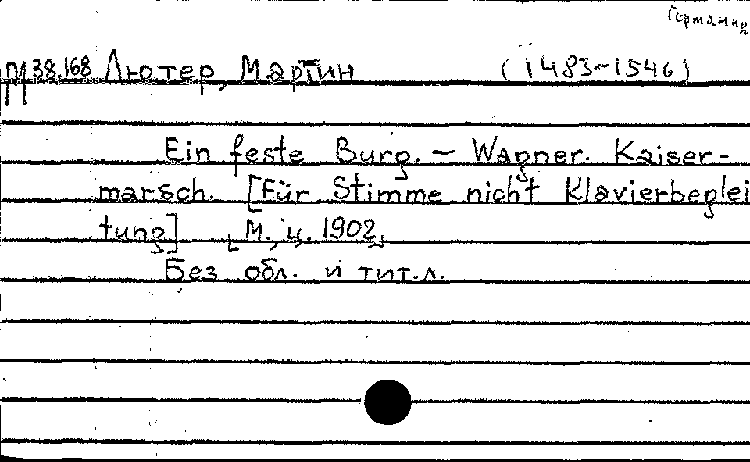 Германия
П38.168 Лютер, Мартин (1483-1546)
Ein feste Burg. – Wagner. Kaiser-
marsch. [Für Stimme nicht Klavierbeglei
tung] [М., ц. 1902]
Без обл. и тит.л.